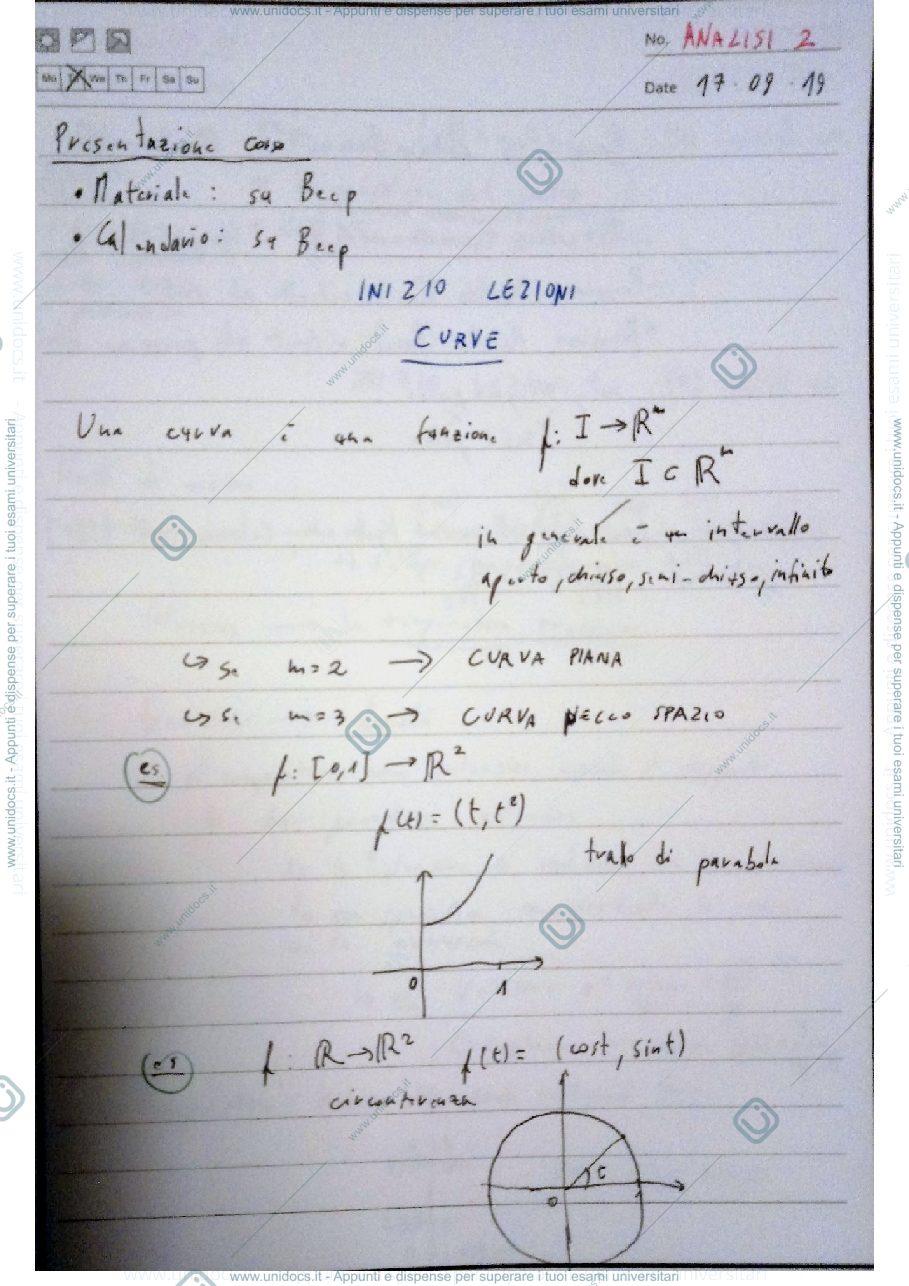 www.unidocs.it - Appunti e dispense per superare i tuoi esami universitari
No. ANALISI 2
Mo Tu We Th Fr Sa Su
Date 17 . 09 . 19
Presentazione corso
• Materiale : su Beep
• Calendario : su Beep
INIZIO LEZIONI
CURVE
Una curva è una funzione f: I → ℝᵐ
dove I ⊂ ℝⁿ
in generale è un intervallo
aperto, chiuso, semi-chiuso, infinito
↪ se m=2 → CURVA PIANA
↪ se m=3 → CURVA NELLO SPAZIO
es f: [0,1] → ℝ²
f(t) = (t, t²)
tratto di parabola
0 1
es f: ℝ → ℝ² f(t) = (cost, sint)
circonferenza
t
0
www.unidocs.it - Appunti e dispense per superare i tuoi esami universitari
www.unidocs.it - Appunti e dispense per superare i tuoi esami universitari
www.unidocs.it - Appunti e dispense per superare i tuoi esami universitari